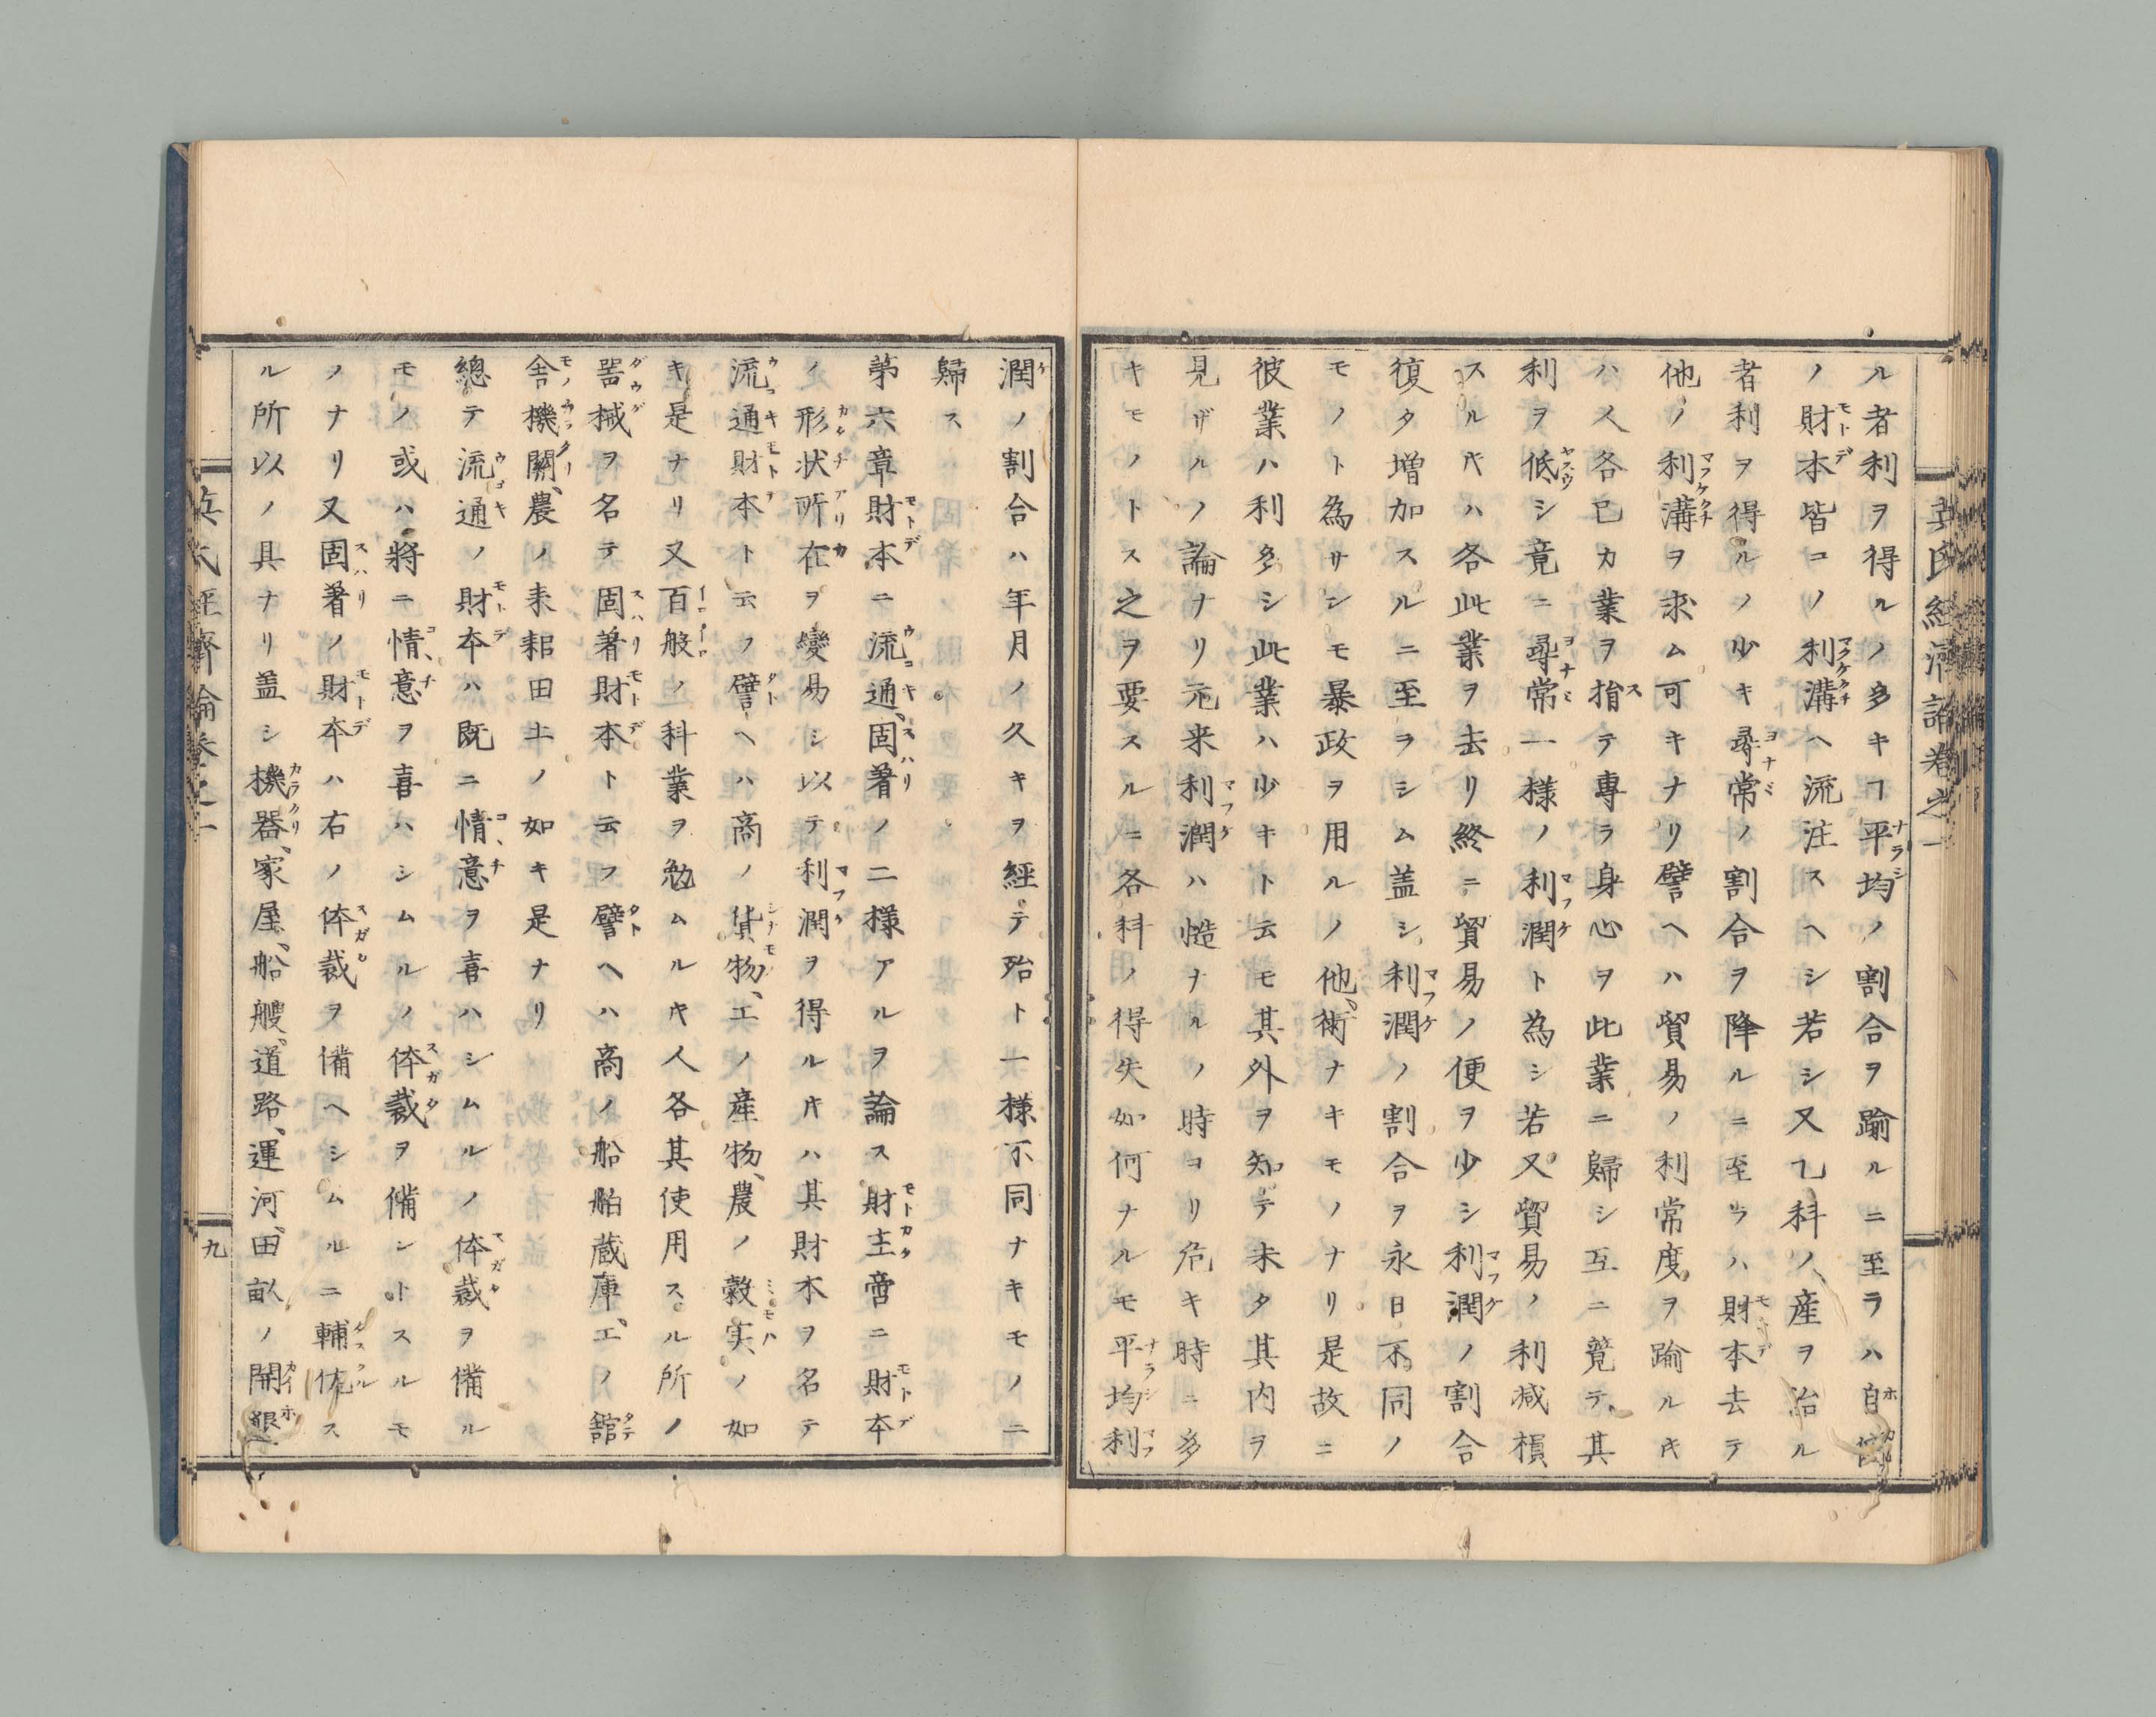 ル者利ヲ得ルノ多キヿ平均ノ割合ヲ踰ルニ至ラハ自餘
ノ財本皆コノ利溝ヘ流注スヘシ若シ又乙科ノ産ヲ治ル
者利ヲ得ルノ少キ尋常ノ割合ヲ降ルニ至ラハ財本去テ
他ノ利溝ヲ求ム可キナリ譬ヘハ貿易ノ利常度ヲ踰ルキ
ハ人各己カ業ヲ指テ專ラ身心ヲ此業ニ歸シ互ニ競テ其
利ヲ低シ竟ニ尋常一様ノ利潤ト為シ若又貿易ノ利减損
スルキハ各此業ヲ去リ終ニ貿易ノ便ヲ少シ利潤ノ割合
復タ増加スルニ至ラシム盖シ利潤ノ割合ヲ永日不同ノ
モノト為サシモ暴政ヲ用ルノ他術ナキモノナリ是故ニ
彼業ハ利多シ此業ハ少キト云モ其外ヲ知テ未タ其内ヲ
見ザルノ論ナリ元来利潤ハ慥ナルノ時ヨリ危キ時ニ多
キモノトス之ヲ要スルニ各科ノ得失如何ナルモ平均利
潤ノ割合ハ年月ノ久キヲ經テ殆ト一様不同ナキモノニ
歸ス
第六章財本ニ流通、固著ノ二様アルヲ論ス財主啻ニ財本
ノ形状所在ヲ變易シ以テ利潤ヲ得ルキハ其財本ヲ名テ
流通財本ト云フ譬ヘハ商ノ貨物、工ノ産物、農ノ穀実、ノ如
キ是ナリ又百般ノ科業ヲ勉ムルキ人各其使用スル所ノ
噐械ヲ名テ固著財本ト云フ譬ヘハ商ノ船舶蔵庫、工ノ舘
舎機關、農ノ耒耜田土ノ如キ是ナリ
總テ流通ノ財本ハ既ニ情意ヲ喜ハシムルノ体裁ヲ備ル
モノ或ハ將ニ情意ヲ喜ハシムルノ体裁ヲ備ントスルモ
ノナリ又固著ノ財本ハ右ノ体裁ヲ備ヘシムルニ輔佐ス
ル所以ノ具ナリ盖シ機器、家屋、船艘、道路、運河、田畝ノ開墾
九